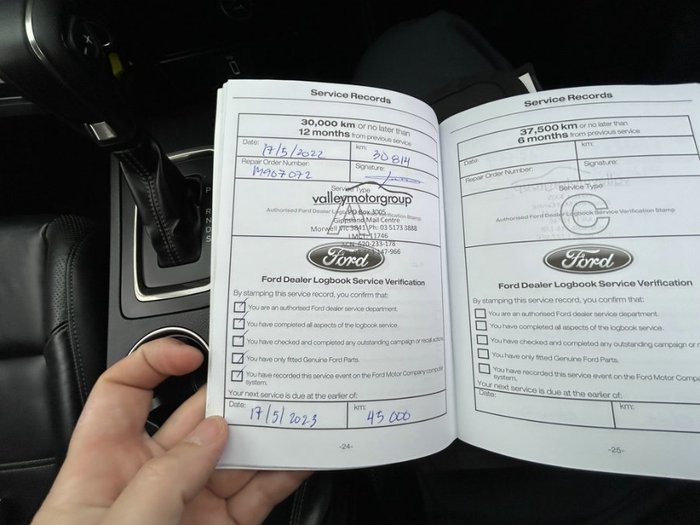 Service Records
30,000 km or no later than
12 months from previous service
Date: 17/5/2022 km: 30814
Repair Order Number: M967072 Signature:
Service Type
A
valleymotorgroup
Authorised Ford Dealer Logbook Service Verification Stamp
PO Box 3005
Gippsland Mail Centre
Morwell Vic 3841 Ph: 03 5173 3888
LMCT 11746
ACN 620-233-178
147-966
Ford
Ford Dealer Logbook Service Verification
By stamping this service record, you confirm that:
You are an authorised Ford dealer service department.
You have completed all aspects of the logbook service.
You have checked and completed any outstanding campaign or recall actions.
You have only fitted Genuine Ford Parts.
You have recorded this service event on the Ford Motor Company computer
system.
Your next service is due at the earlier of:
Date: 17/5/2023 km: 45000
-24-
Service Records
37,500 km or no later than
6 months from previous service
Date: km:
Repair Order Number: Signature:
Service Type
C
Authorised Ford Dealer Logbook Service Verification Stamp
Ford
Ford Dealer Logbook Service Verification
By stamping this service record, you confirm that:
You are an authorised Ford dealer service department.
You have completed all aspects of the logbook service.
You have checked and completed any outstanding campaign or r
You have only fitted Genuine Ford Parts.
You have recorded this service event on the Ford Motor Compan
system.
Your next service is due at the earlier of:
Date: km:
-25-
P
R
N
D
S